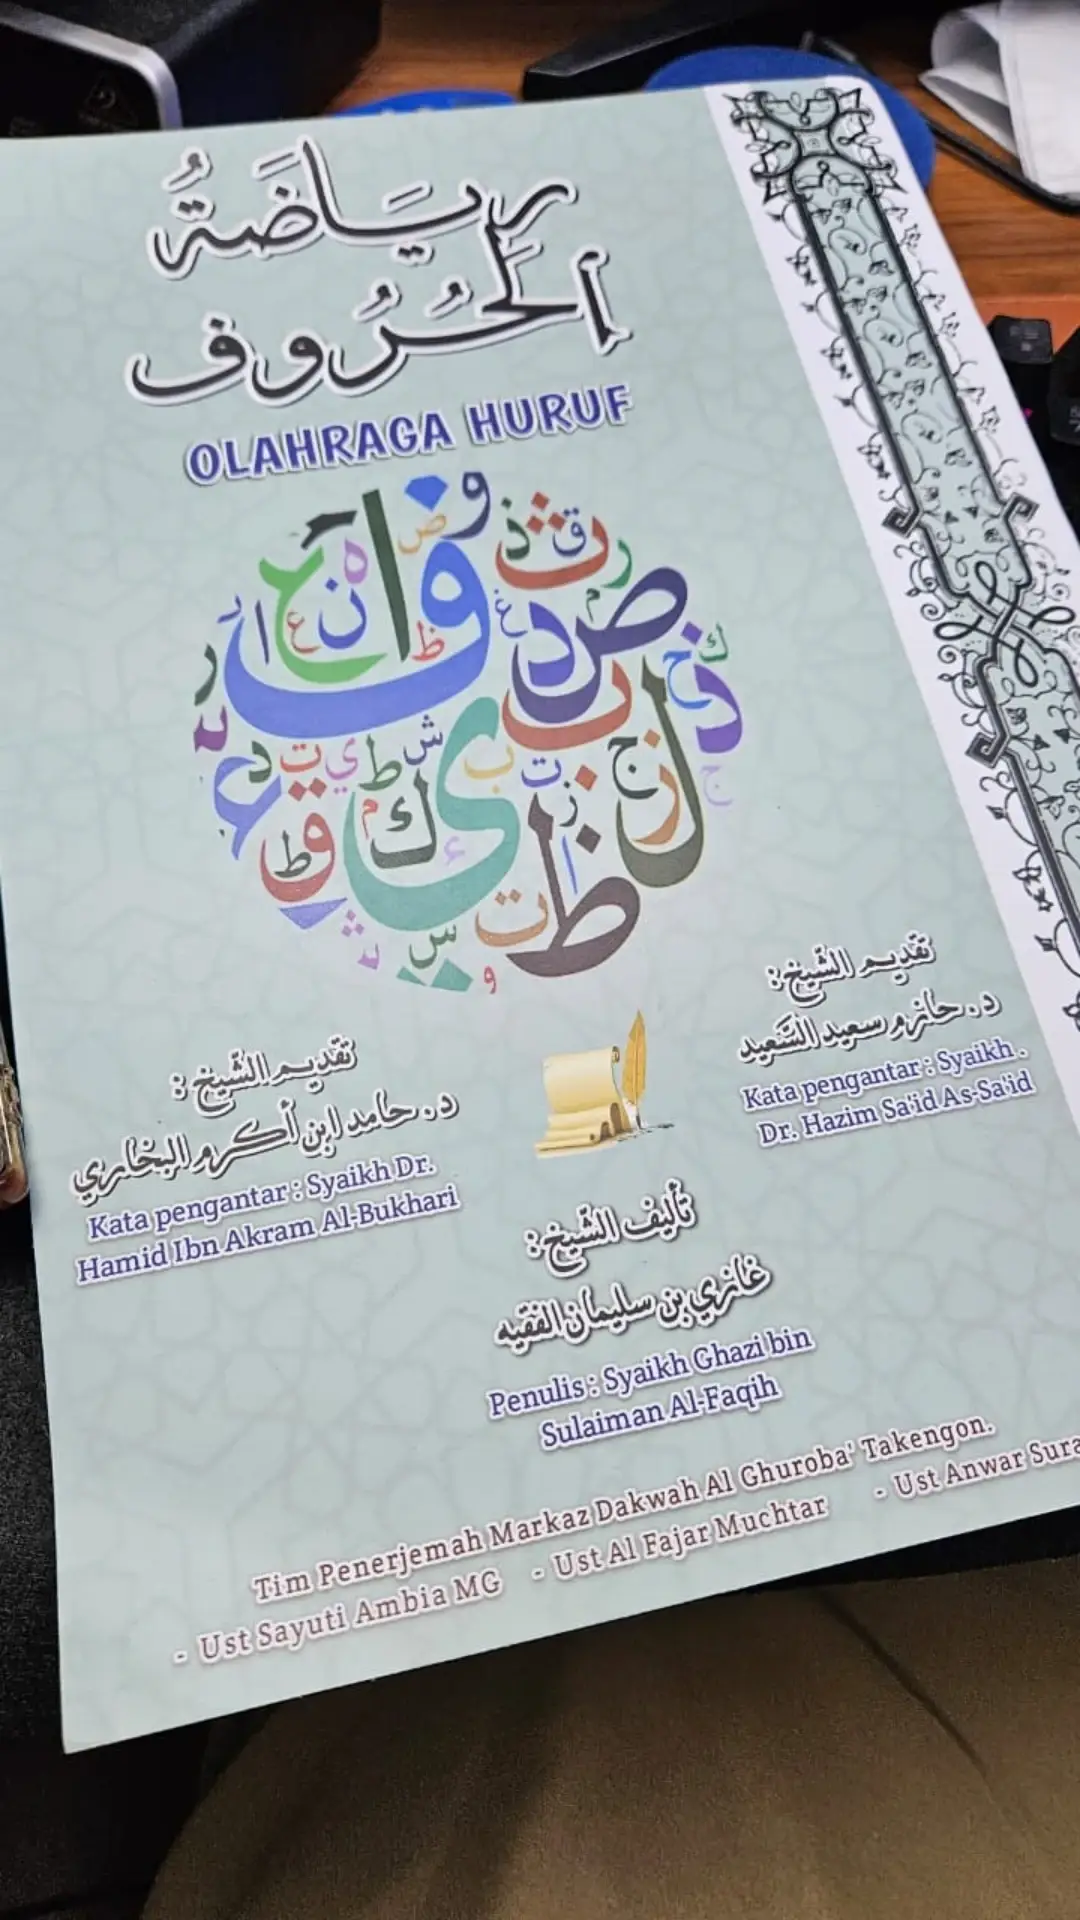 رِيَاضَةُ
الْحُرُوف
OLAHRAGA HURUF
تقديم الشّيخ :
د. حازم سعيد السَّعيد
Kata pengantar : Syaikh .
Dr. Hazim Sa'id As-Sa'id
تقديم الشّيخ :
د. حامد ابن أكرم البخاري
Kata pengantar : Syaikh Dr.
Hamid Ibn Akram Al-Bukhari
تأليف الشّيخ :
غازي بن سليمان الفقيه
Penulis : Syaikh Ghazi bin
Sulaiman Al-Faqih
Tim Penerjemah Markaz Dakwah Al Ghuroba' Takengon.
- Ust Sayuti Ambia MG - Ust Al Fajar Muchtar - Ust Anwar Sura